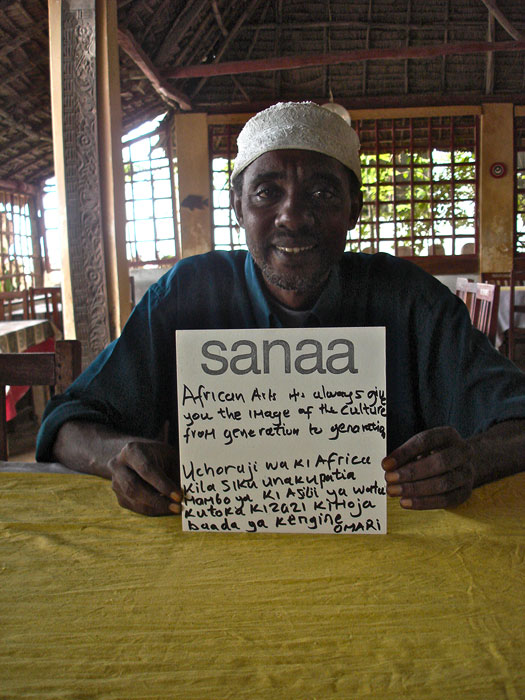 sanaa
African Arts its always give
you the image of the culture
from generation to generation
Uchoraji wa Ki Africa
Kila siku unakupatia
Mambo ya Ki Asili ya watu
Kutoka Kizazi Kimoja
baada ya Kengine
OMARI